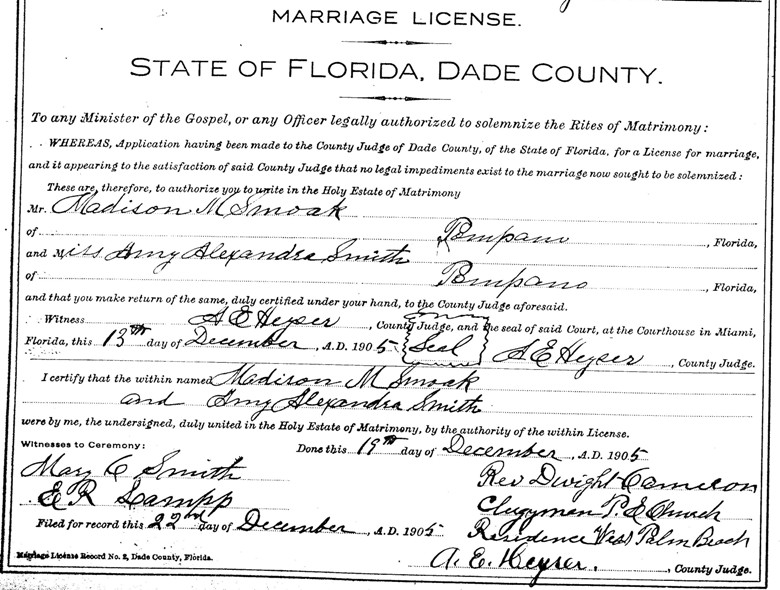 MARRIAGE LICENSE.
STATE OF FLORIDA, DADE COUNTY.
To any Minister of the Gospel, or any Officer legally authorized to solemnize the Rites of Matrimony:
WHEREAS, Application having been made to the County Judge of Dade County, of the State of Florida, for a License for marriage,
and it appearing to the satisfaction of said County Judge that no legal impediments exist to the marriage now sought to be solemnized:
These are, therefore, to authorize you to unite in the Holy Estate of Matrimony
Mr. Madison M Smoak
of Pompano, Florida,
and Miss Amy Alexandra Smith
of Pompano, Florida,
and that you make return of the same, duly certified under your hand, to the County Judge aforesaid.
Witness A E Heyser, County Judge, and the seal of said Court, at the Courthouse in Miami,
Florida, this 13th day of December, A.D. 1905 Seal A E Heyser, County Judge.
I certify that the within named Madison M Smoak
and Amy Alexandra Smith
were by me, the undersigned, duly united in the Holy Estate of Matrimony, by the authority of the within License.
Witnesses to Ceremony: Done this 19th day of December, A.D. 1905
Mary C Smith Rev Dwight Cameron
E R Lampp Clergyman P. E Church
Filed for record this 22nd day of December, A.D. 1905 Residence West Palm Beach
A. E. Heyser, County Judge.
Marriage License Record No. 2, Dade County, Florida.